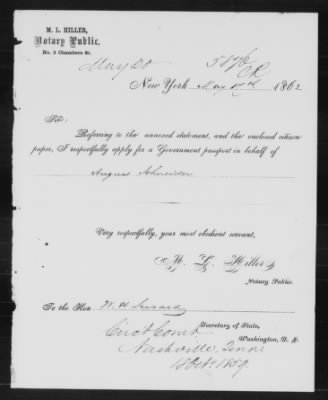 M. L. HILLER,
Notary Public,
No. 3 Chambers St.
May 20
New York May 1862
Sir:
Referring to the annexed statement, and the enclosed citizen
paper, I respectfully apply for a Government passport in behalf of
August Schneider
Very respectfully, your most obedient servant,
M. L. Hiller
Notary Public.
To the Hon. W. H Seward
Secretary of State,
Washington, D. C.
Circt Court
Nashville, Tenn.
18 Oct. 1859.